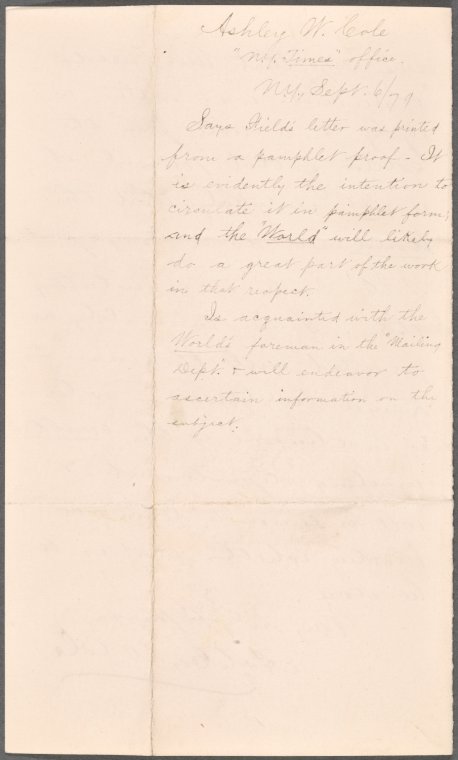 Ashley W. Cole
"N.Y. Times" office.
N.Y., Sept. 6/79
Says Field's letter was printed
from a pamphlet proof - It
is evidently the intention to
circulate it in pamphlet form,
and the "World" will likely
do a great part of the work
in that respect.
Is acquainted with the
World's foreman in the "Mailing
Dept." & will endeavor to
ascertain information on the
subject.